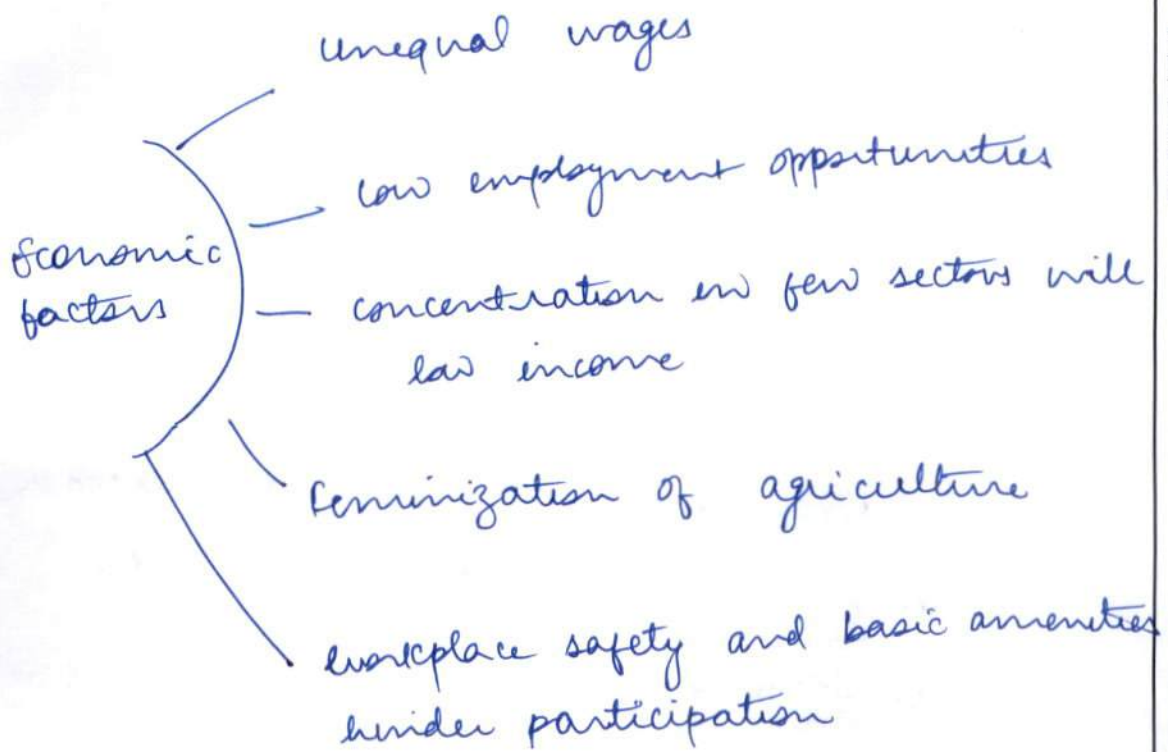 unequal wages
low employment opportunities
Economic
factors
concentration in few sectors will
low income
Feminization of agriculture
workplace safety and basic amenities
hinder participation